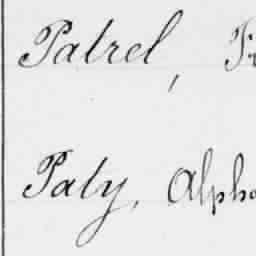 Patrel, Fr
Paty, Alpho